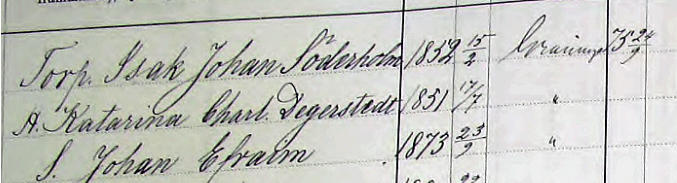 Torp. Isak Johan Söderholm 1852 15/2 Graninge 75 24/9
H. Katarina Charl. Degerstedt 1851 17/7 "
S. Johan Efraim 1873 23/9 "